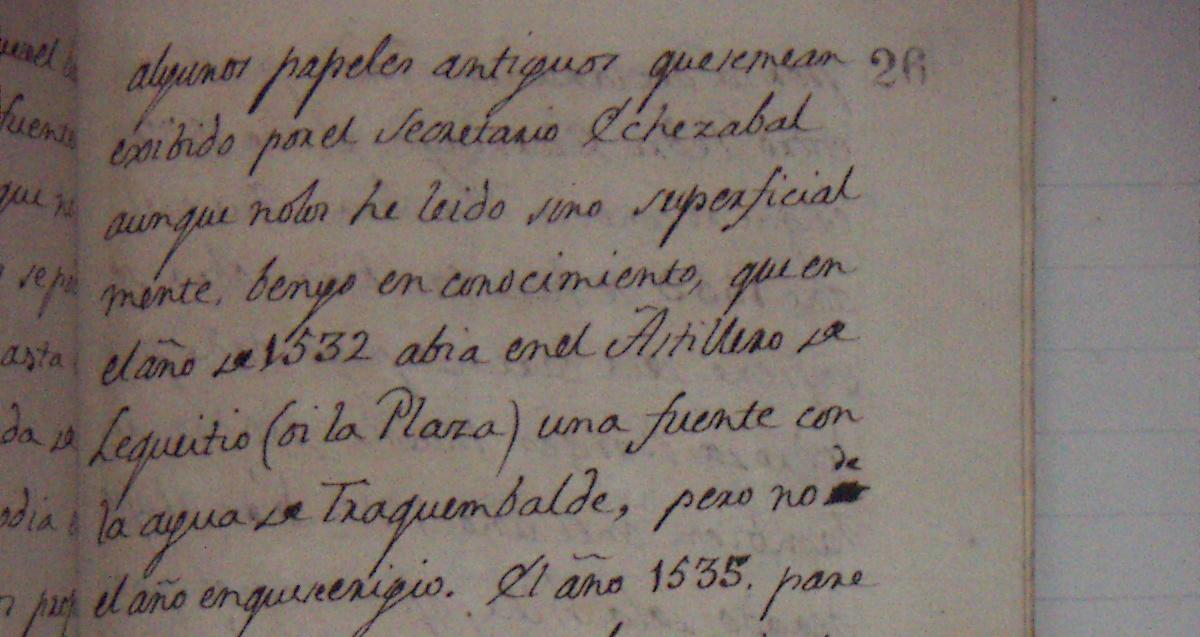 algunos papeles antiguos quesemean 26
exsibido por el secretario Echezabal
aunque nolos he leido sino superficial
mente, bengo en conocimiento, que en
el año de 1532 abia enel Astillero de
Lequeitio (oi la Plaza) una fuente con
la agua de Traguembalde, pero no de
el año enqueseerigio. El año 1535. pare